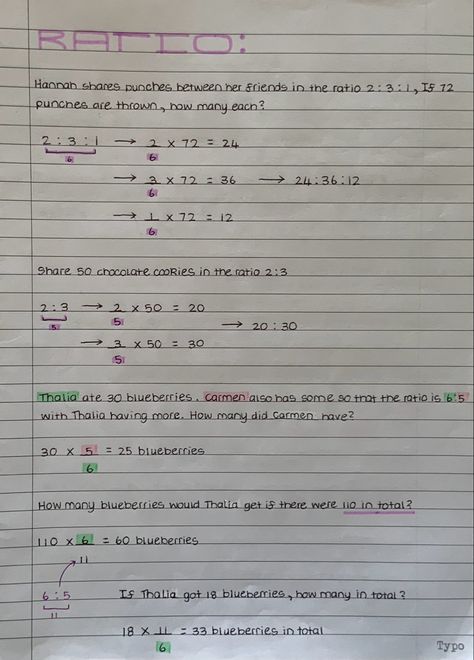 RATIO:
Hannah shares punches between her friends in the ratio 2 : 3 : 1, If 72
punches are thrown, how many each?
2 : 3 : 1 → 2/6 x 72 = 24
6
→ 3/6 x 72 = 36 → 24:36:12
→ 1/6 x 72 = 12
Share 50 chocolate cookies in the ratio 2:3
2:3 → 2/5 x 50 = 20
5
→ 20 : 30
→ 3/5 x 50 = 30
Thalia ate 30 blueberries. Carmen also has some so that the ratio is 6:5
with Thalia having more. How many did Carmen have?
30 x 5/6 = 25 blueberries
How many blueberries would Thalia get if there were 110 in total?
110 x 6/11 = 60 blueberries
6:5
11
If Thalia got 18 blueberries, how many in total?
18 x 11/6 = 33 blueberries in total
Typo